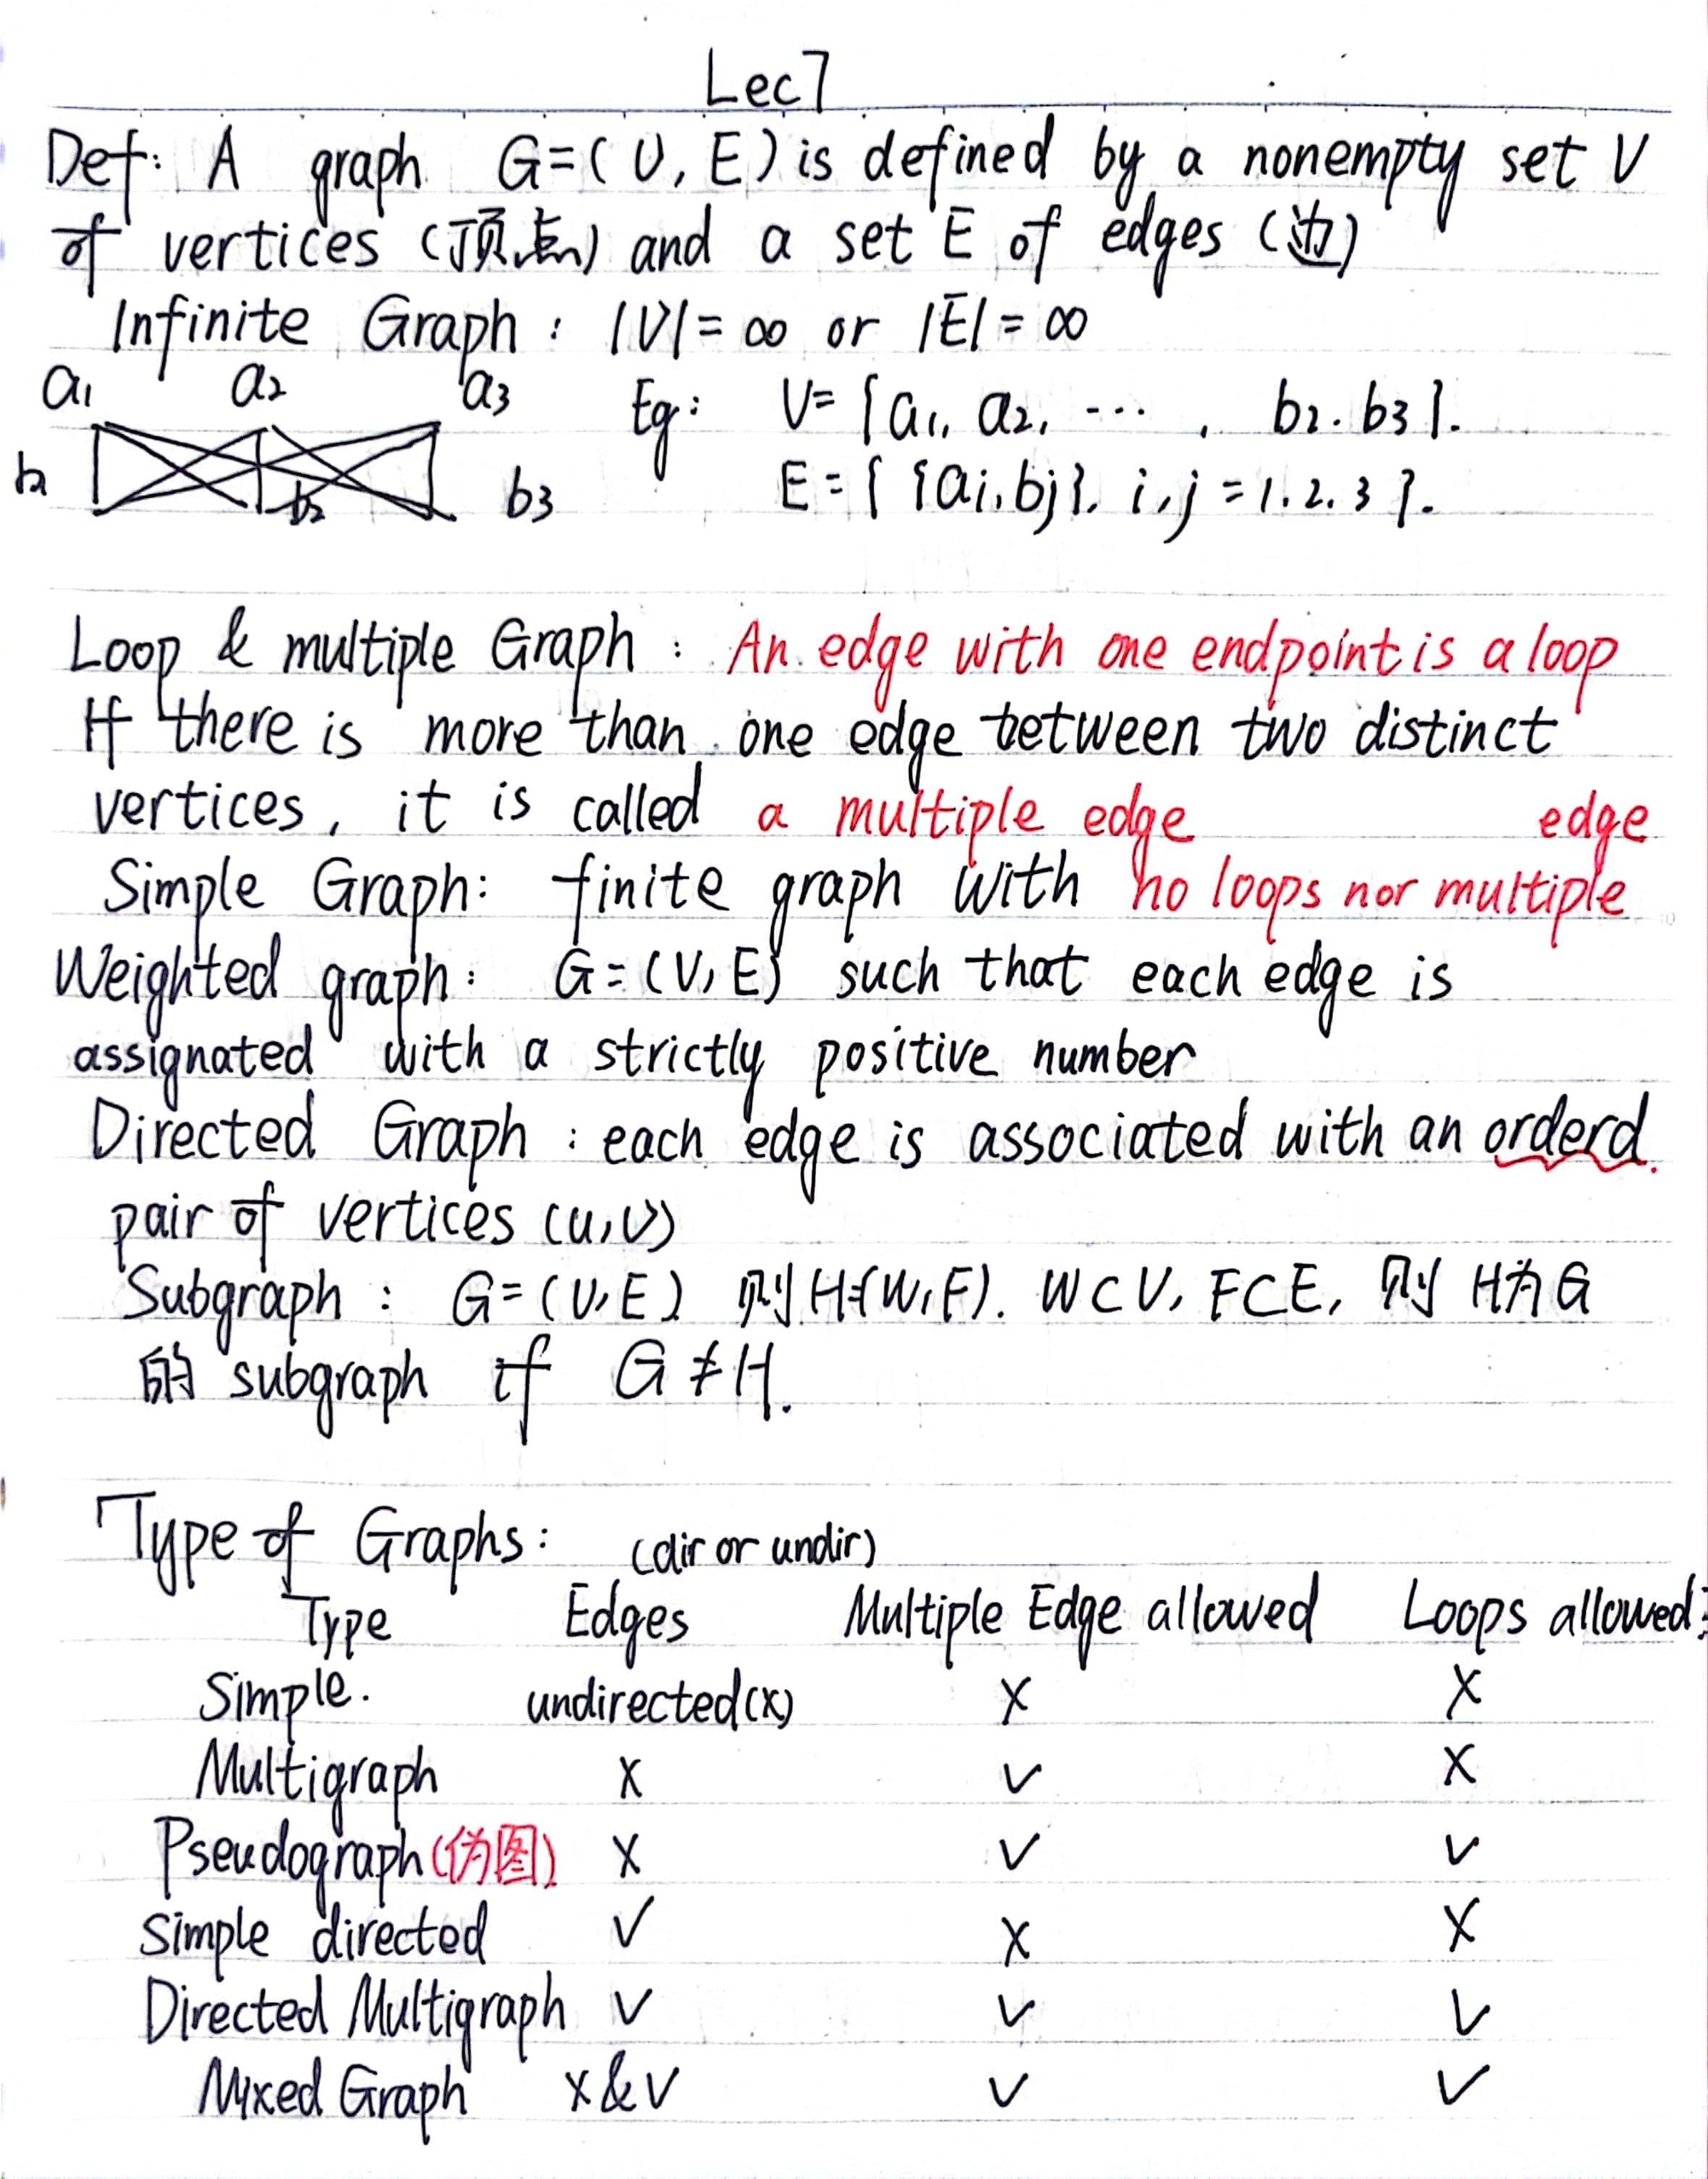 Lec7
Def: A graph G=(V, E) is defined by a nonempty set V
of vertices (顶点) and a set E of edges (边)
Infinite Graph: |V|=∞ or |E|=∞
a1 a2 a3
Eg: V={a1, a2, ..., b2. b3}.
b2 b3
E={ {ai, bj}, i,j=1.2.3 }.
Loop & multiple Graph: An edge with one endpoint is a loop
If there is more than one edge between two distinct
vertices, it is called a multiple edge
edge
Simple Graph: finite graph with no loops nor multiple
Weighted graph: G=(V, E) such that each edge is
assignated with a strictly positive number
Directed Graph: each edge is associated with an orderd
pair of vertices (u,v)
Subgraph: G=(V,E) 则H=(W,F). W⊂V, F⊂E, 则 H为G
的 subgraph if G≠H.
Type of Graphs: (dir or undir)
Type Edges Multiple Edge allowed Loops allowed:
Simple. undirected(x) x x
Multigraph x ✓ x
Pseudograph(伪图) x ✓ ✓
Simple directed ✓ x x
Directed Multigraph ✓ ✓ ✓
Mixed Graph x&✓ ✓ ✓